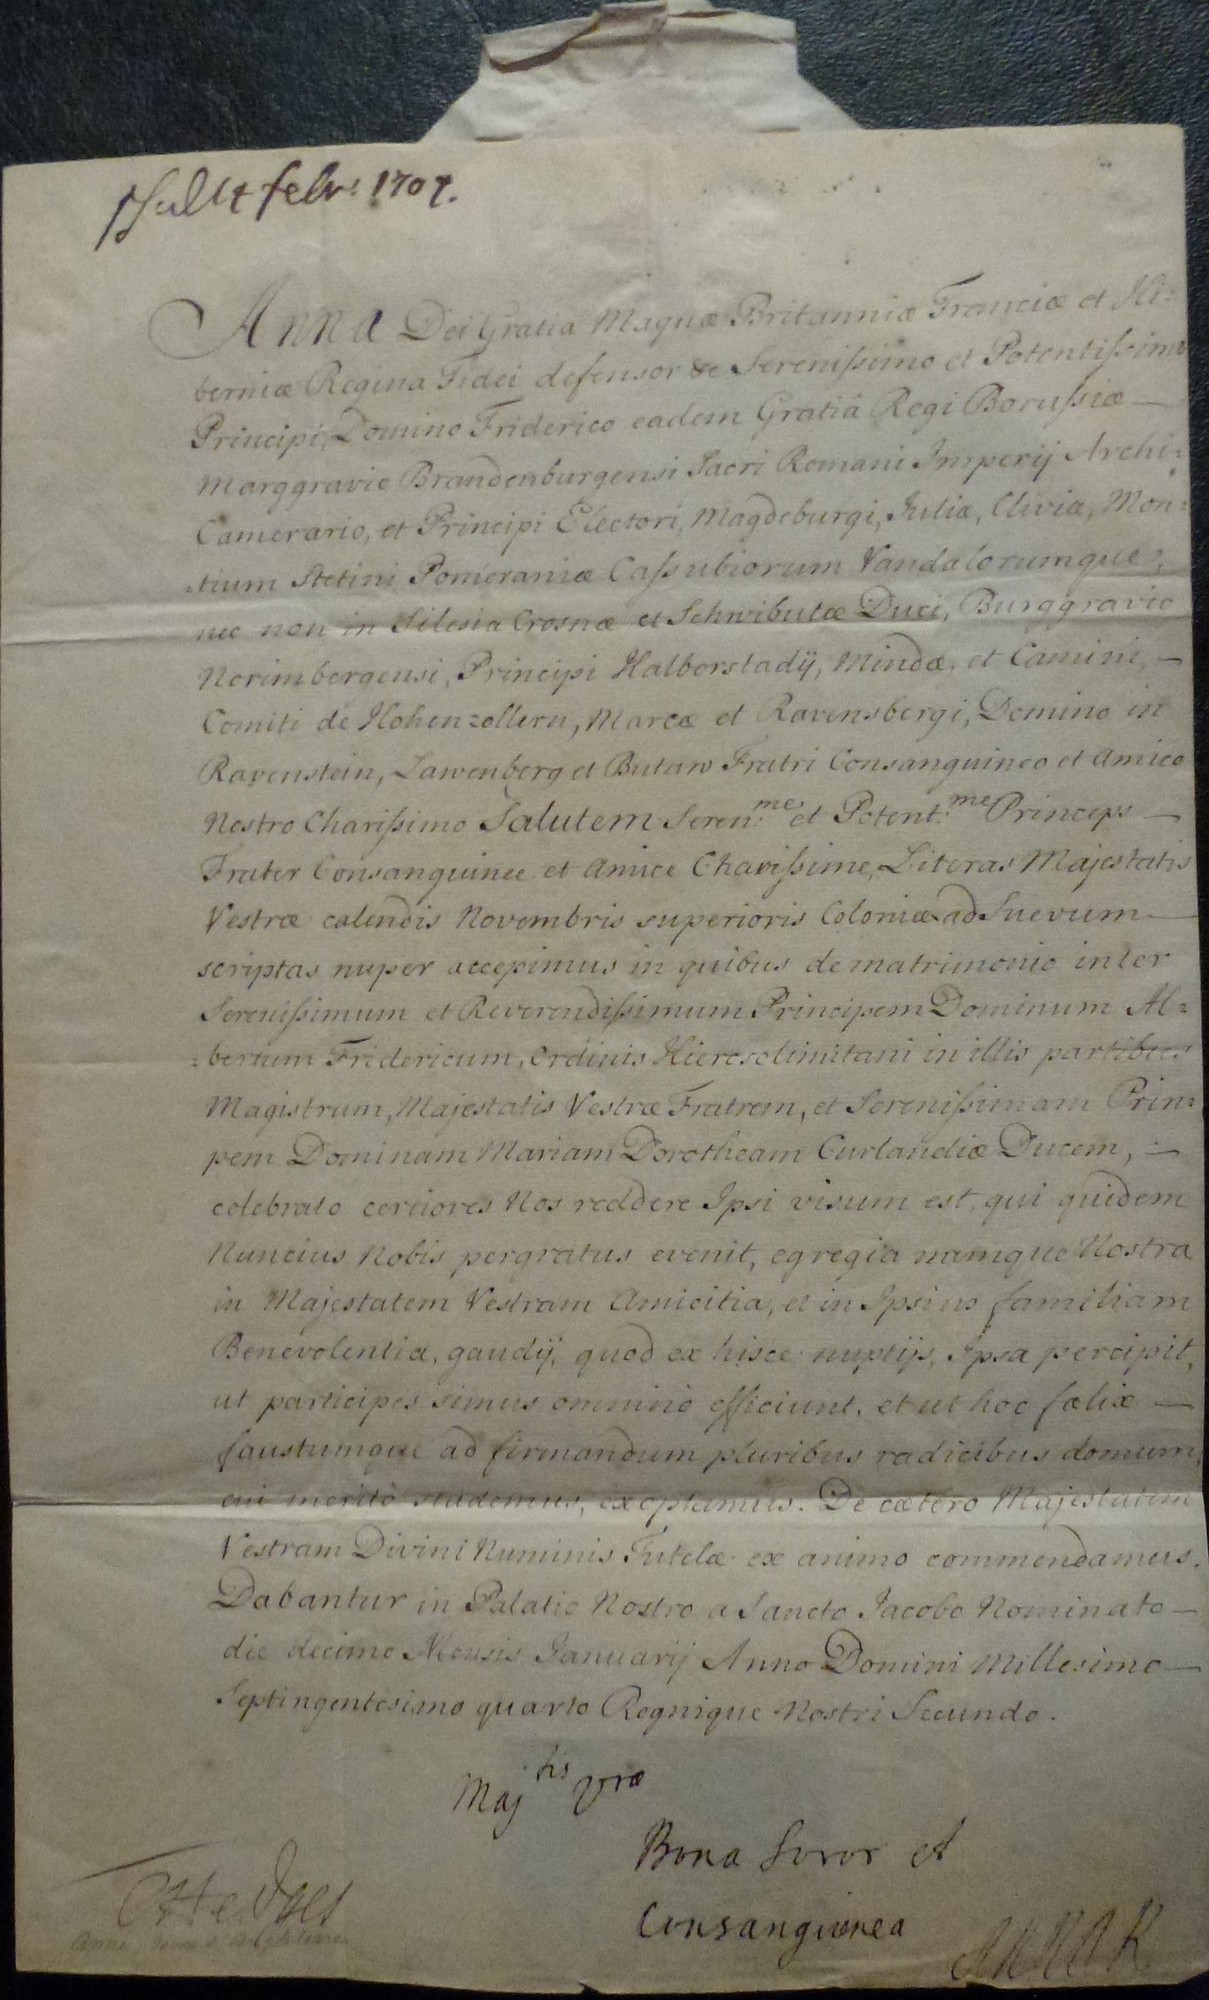 febr: 1707.
Anna Dei Gratia Magnæ Britanniæ Franciæ et Hi=
berniæ Regina Fidei defensor &c Serenissimo et Potentissimo
Principi, Domino Friderico eadem Gratiâ Regi Borussiæ —
Marggravio Brandenburgensi Sacri Romani Imperij Archi=
Camerario, et Principi Electori, Magdeburgi, Juliæ, Cliviæ, Mon=
=tium Stetini Pomeraniæ Cassubiorum Vandalorumque,
nec non in Silesia Crosnæ et Schwibutæ Duci, Burggravio
Norimbergensi, Principi Halberstadij, Mindæ, et Camini, —
Comiti de Hohenzollern, Marcæ et Ravensbergi, Domino in
Ravenstein, Lawenberg et Butaw Fratri Consanguineo et Amico
Nostro Charissimo Salutem Seren:me et Potent:me Princeps —
Frater Consanguinee et Amice Charissime, Literas Majestatis
Vestræ calendis Novembris superioris Coloniæ ad Suevum —
scriptas nuper accepimus in quibus de matrimonio inter
Serenissimum et Reverendissimum Principem Dominum Al=
=bertum Fridericum, Ordinis Hierosolimitani in illis partibus
Magistrum, Majestatis Vestræ Fratrem, et Serenissimam Prin=
pem Dominam Mariam Dorotheam Curlandiæ Ducem, —
celebrato certiores Nos reddere Ipsi visum est, qui quidem
Nuncius Nobis pergratus evenit, egregia namque Nostra
in Majestatem Vestram Amicitia, et in Ipsius familiam
Benevolentia, gaudij, quod ex hisce nuptijs, Ipsa percipit,
ut participes simus omninò efficiunt, et ut hoc fælix —
faustumque ad firmandum pluribus radicibus domum,
cui meritò studemus, exoptamus. De cætero Majestatem
Vestram Divini Numinis Tutelæ ex animo commendamus.
Dabantur in Palatio Nostro a Sancto Jacobo Nominato —
die decimo Mensis Januarij Anno Domini Millesimo —
Septingentesimo quarto Regnique Nostri Secundo.
Majtis Vræ
Bona Soror et
Consanguinea
Anna R
C Hedges